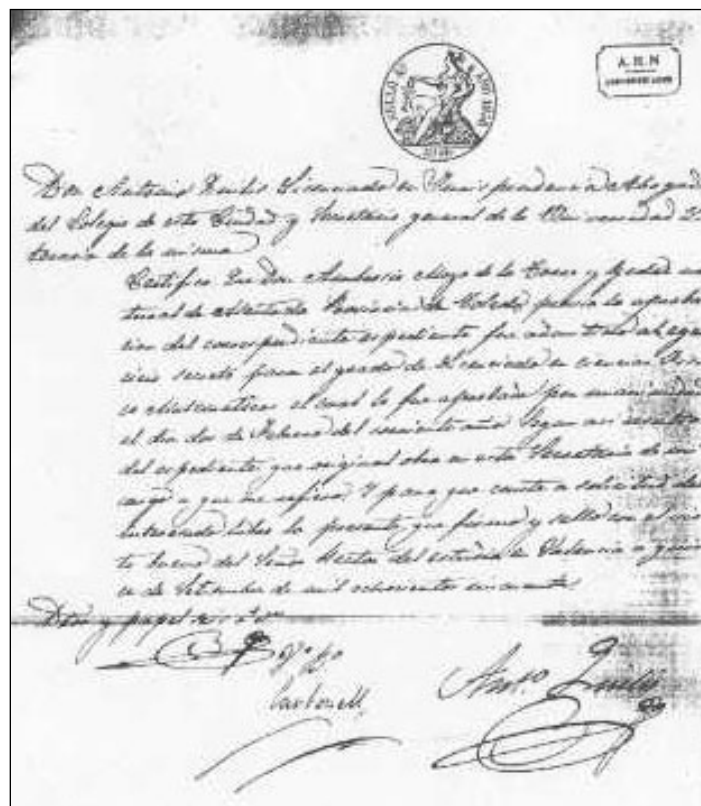 SELLO 4º AÑO 1850
A.H.N
Don Antonio Zacarés Licenciado en Jurisprudencia Abogado
del Colegio de esta Ciudad y Secretario general de la Universidad Li
teraria de la misma
Certifico Que Don Ambrosio Moya de la Torre y na
tural de Provincia de Toledo previa la aproba
cion del correspondiente expediente fue admitido al eger
cicio secreto para el grado de Licenciado en ciencias Fisi
co Matematicas el cual le fue aprobado por unanimidad
el dia dos de Febrero del corriente año Segun asi resulta
del expediente que original obra en esta Secretaria de mi
cargo a que me refiero Y para que conste a solicitud del
interesado libro la presente que firmo y sello con el vis
to bueno del Señor Rector del estudio en Valencia a quin
ce de Setiembre de mil ochocientos cincuenta.
y papel
Vº Bº
Carbonell
Antº